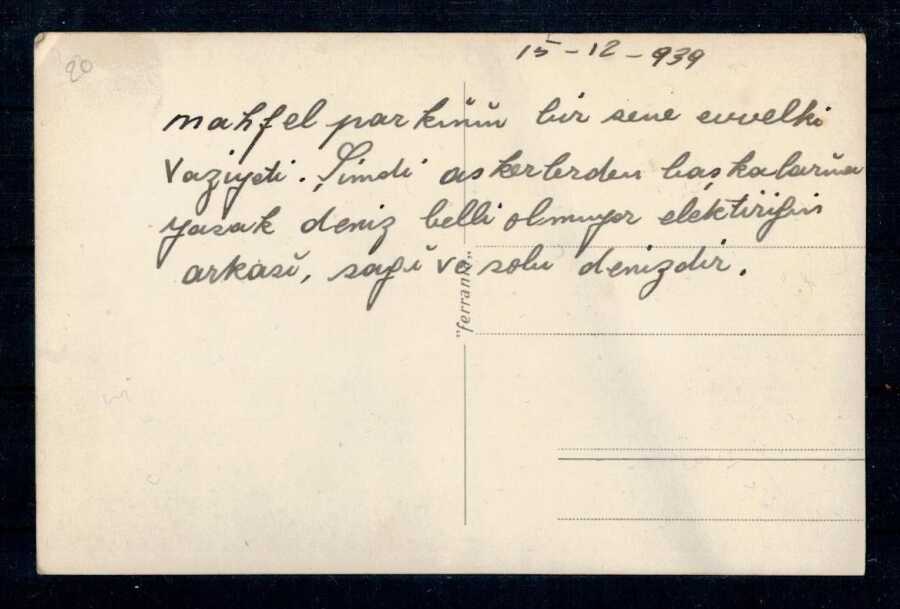 20
15-12-939
mahfel parkının bir sene evvelki
Vaziyeti. Şimdi askerlerden başkalarına
yasak deniz belli olmuyor elektiriğin
arkası, sağı ve solu denizdir.
"ferrania"